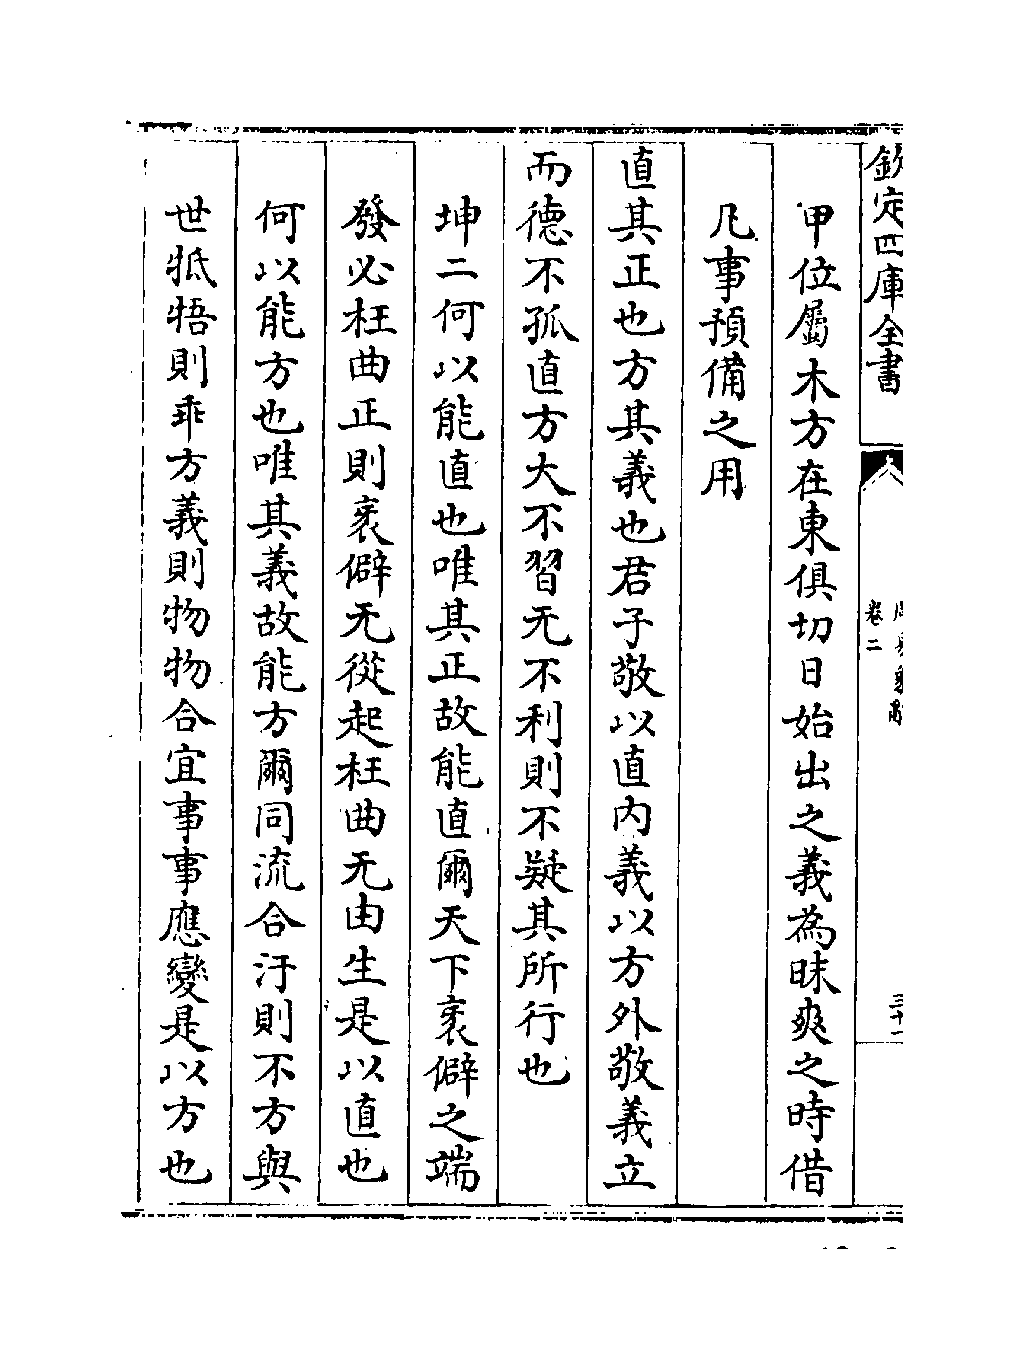 欽定四庫全書
卷二
三十一
甲位屬木方在東俱切日始出之義為昧爽之時借
凡事預備之用
直其正也方其義也君子敬以直內義以方外敬義立
而德不孤直方大不習无不利則不疑其所行也
坤二何以能直也唯其正故能直爾天下衺僻之端
發必枉曲正則衺僻无從起枉曲无由生是以直也
何以能方也唯其義故能方爾同流合汙則不方與
世牴牾則乖方義則物物合宜事事應變是以方也